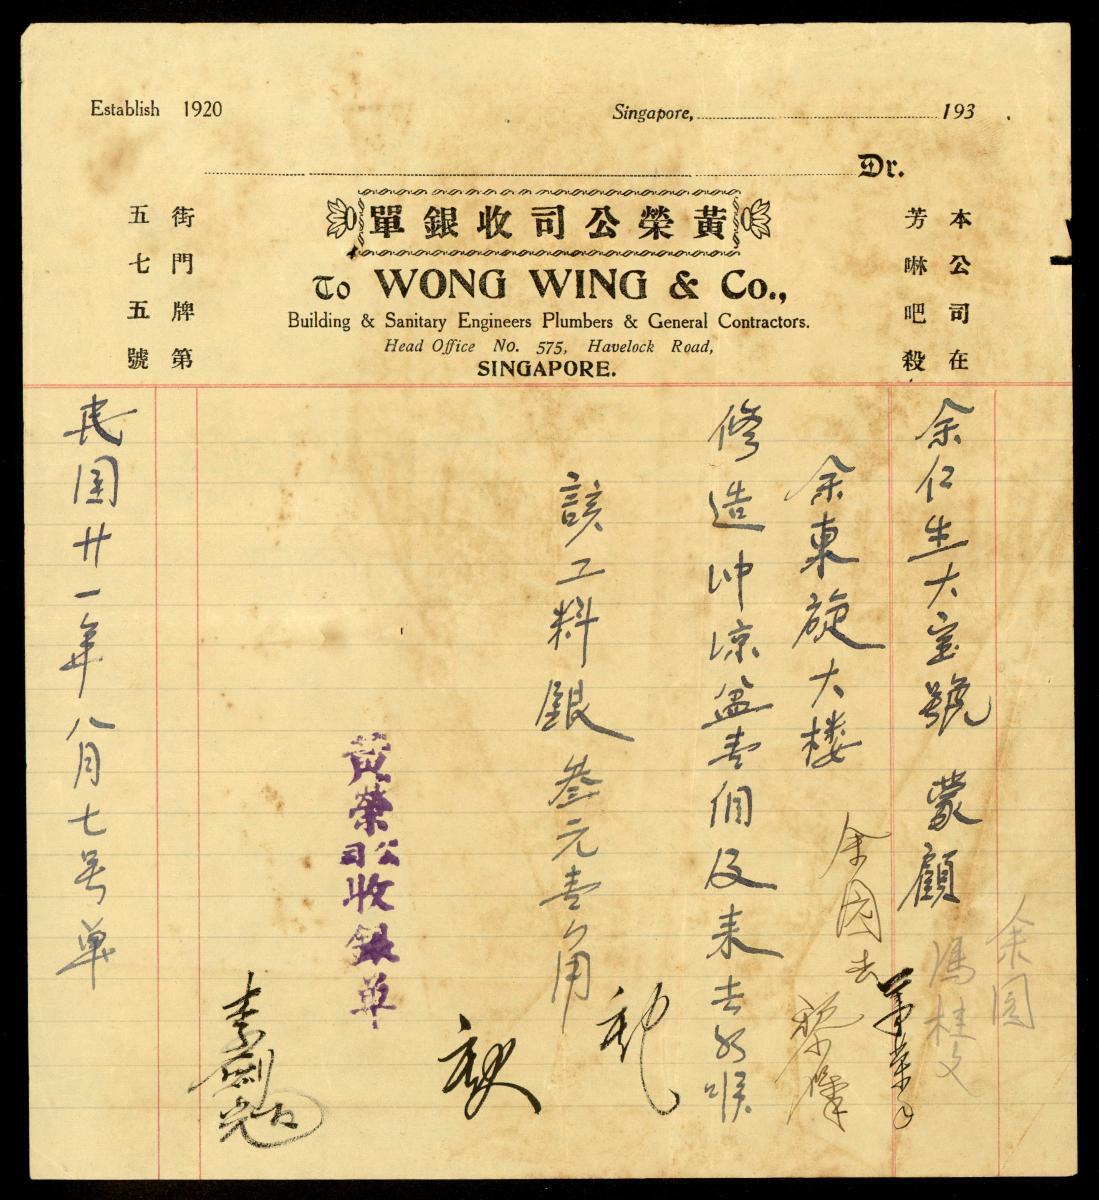 Establish 1920
Singapore, 193
Dr.
黃榮公司收銀單
To WONG WING & Co.,
Building & Sanitary Engineers Plumbers & General Contractors.
Head Office No. 575, Havelock Road,
SINGAPORE.
本公司在
芳啉吧殺
街門牌第
五七五號
余仁生大宝號 蒙顧
余東旋大楼
修造冲凉盆壹個及来去水喉
該工料銀叁元壹角
黄榮公司收銀单
民国廿一年八月七号单
余园
馮桂文
余园去
李劍光